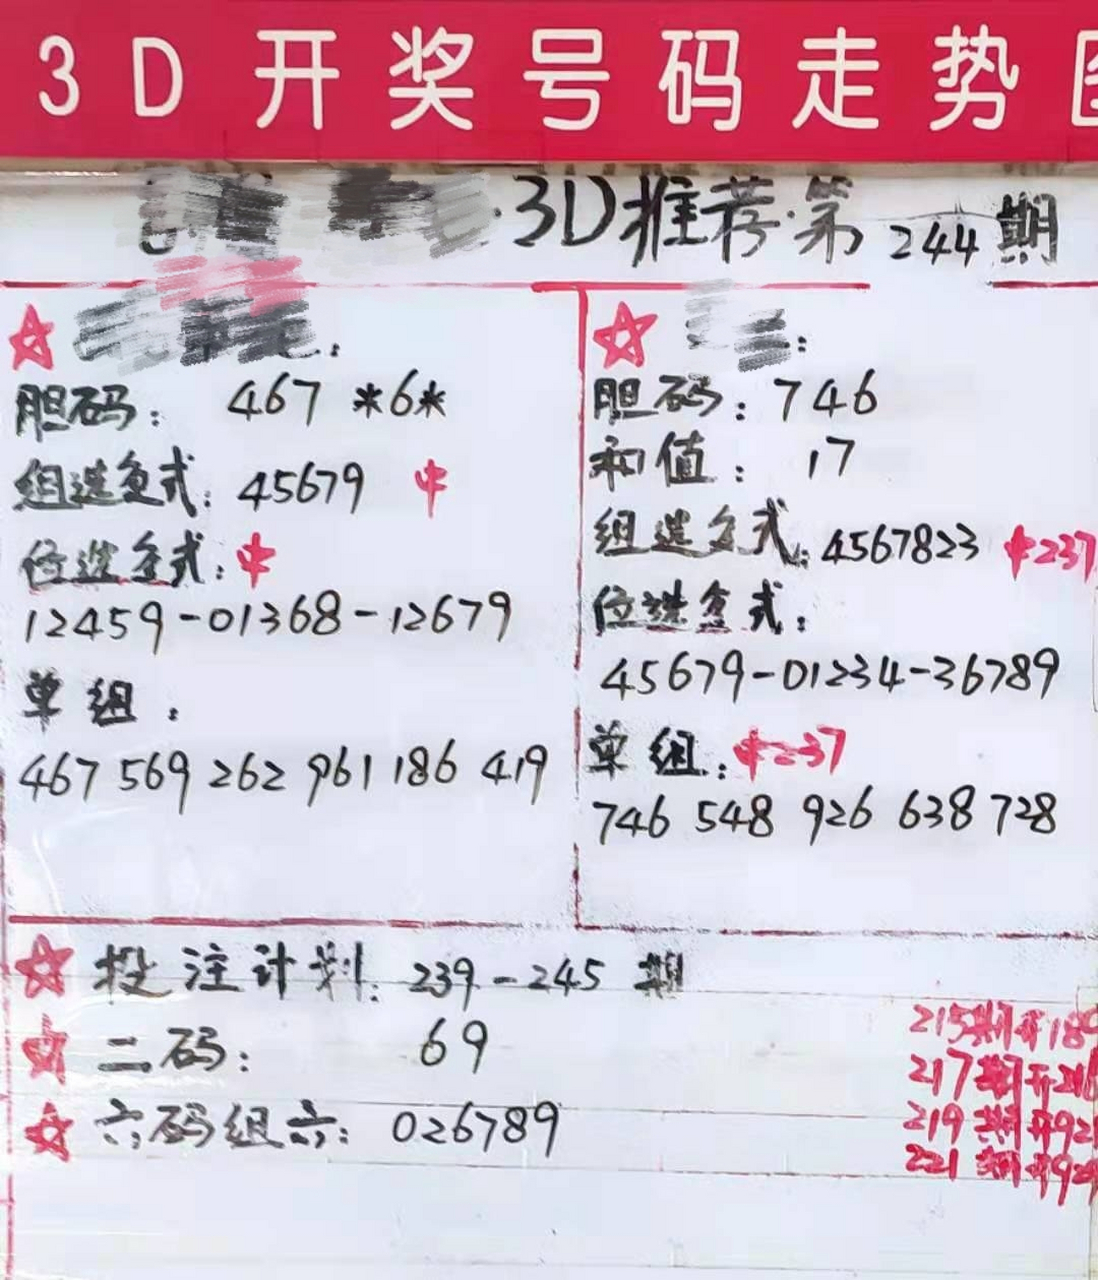 3D开奖号码走势
3D推荐·第244期
胆码: 467 *6*
组选复式: 45679 中
位选复式: 中
12459-01368-12679
单组:
467 569 262 961 186 419
胆码: 746
和值: 17
组选复式: 4567823 中237
位选复式:
45679-01234-36789
单组: 中237
746 548 926 638 728
投注计划: 239-245期
二码: 69
六码组六: 026789
215期开18
217期开216
219期开921
221期开92